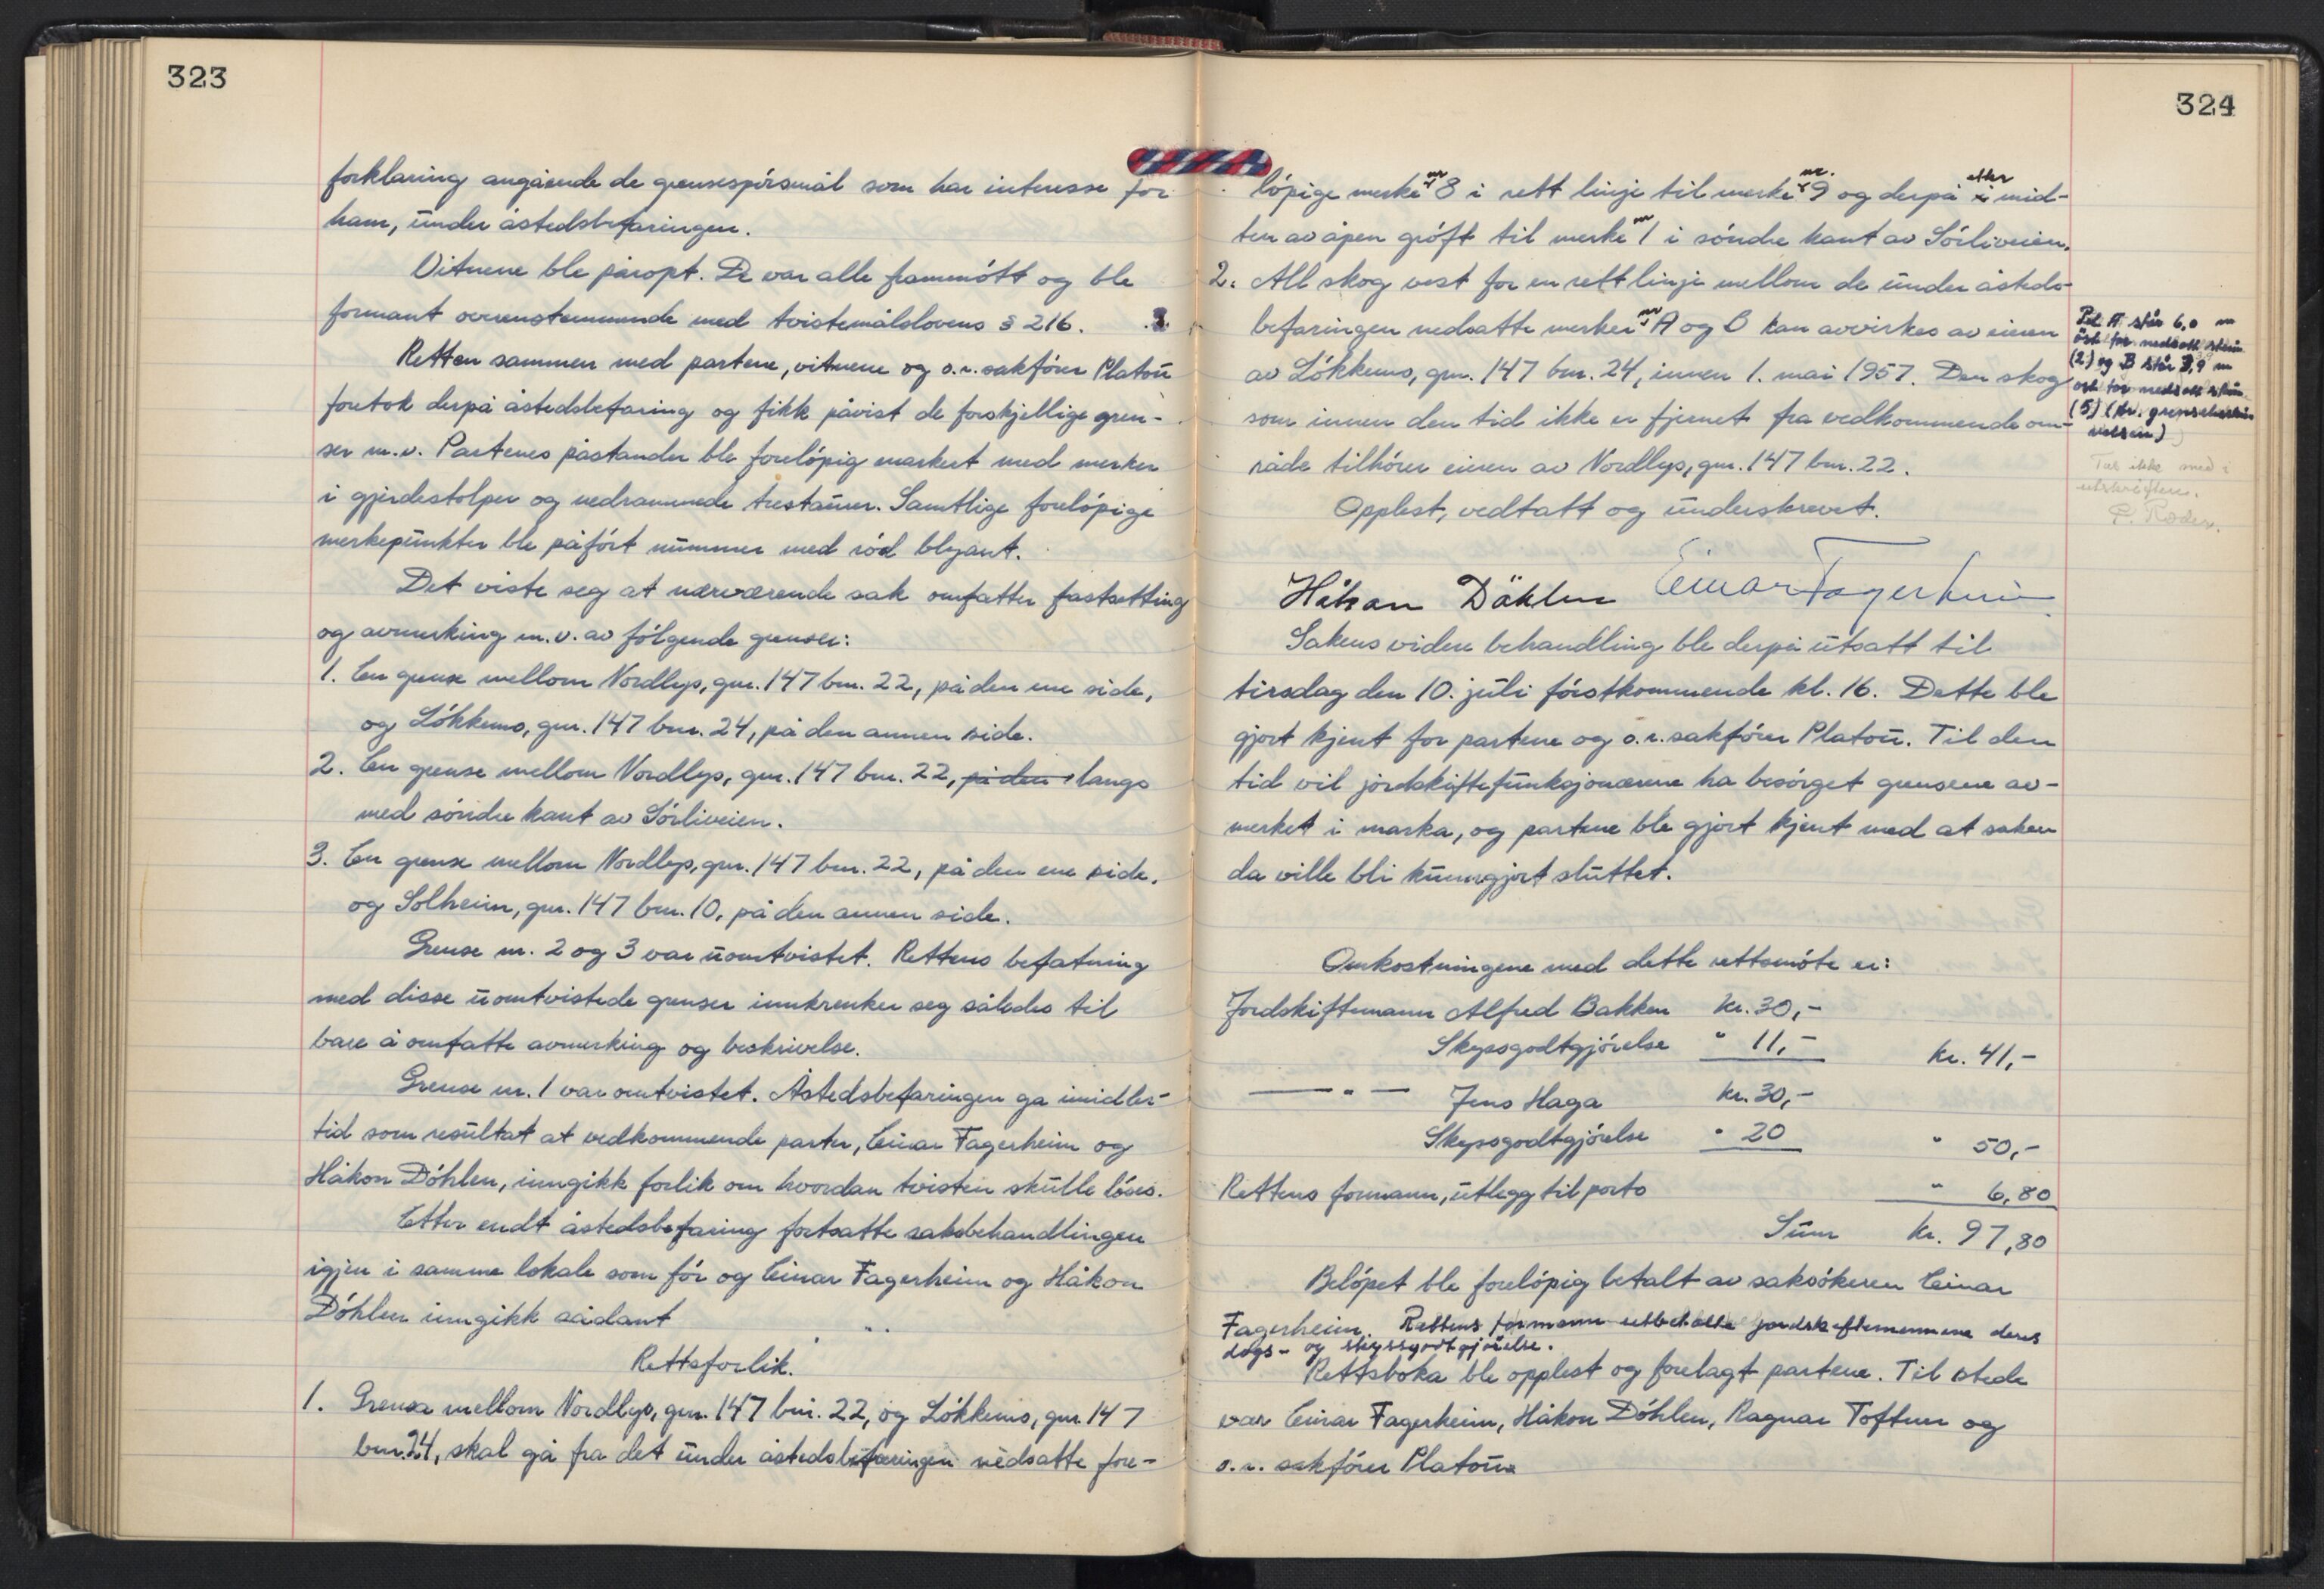 323
forklaring angående de grensespørsmål som har interesse for
ham, under åstedsbefaringen.
Vitnene ble påropt. De var alle frammøtt og ble
formant overenstemmende med tvistemålslovens § 216.
Retten sammen med partene, vitnene og o.r.sakfører Platou
foretok derpå åstedsbefaring og fikk påvist de forskjellige gren-
ser m.v. Partenes påstander ble foreløpig markert med merker
i gjerdestolper og nedrammede trestaurer. Samtlige foreløpige
merkepunkter ble påført nummer med rød blyant.
Det viste seg at nærværende sak omfatter fastsetting
og avmerking m.v. av følgende grenser:
1. En grense mellom Nordlys, gnr. 147 bnr. 22, på den ene side,
og Løkkemo, gnr. 147 bnr. 24, på den annen side.
2. En grense mellom Nordlys, gnr. 147 bnr. 22, på den langs
med søndre kant av Sørliveien.
3. En grense mellom Nordlys, gnr. 147 bnr. 22, på den ene side,
og Solheim, gnr. 147 bnr. 10, på den annen side.
Grense nr. 2 og 3 var uomtvistet. Rettens befatning
med disse uomtvistede grenser innkrenker seg således til
bare å omfatte avmerking og beskrivelse.
Grense nr. 1 var omtvistet. Åstedsbefaringen ga imidler-
tid som resultat at vedkommende parter, Einar Fagerheim og
Håkon Døhlen, inngikk forlik om hvordan tvisten skulle løses.
Etter endt åstedsbefaring fortsatte saksbehandlingen
igjen i samme lokale som før og Einar Fagerheim og Håkon
Døhlen inngikk sådant
Rettsforlik.
1. Grensa mellom Nordlys, gnr. 147 bnr. 22, og Løkkemo, gnr. 147
bnr. 24, skal gå fra det under åstedsbefaringen nedsatte fore-
324
løpige merke nr 8 i rett linje til merke nr. 9 og derpå i etter mid-
ten av åpen grøft til merke nr 1 i søndre kant av Sørliveien.
2. All skog vest for en rett linje mellom de under åsteds-
befaringen nedsatte merker nr A og B kan avvirkes av eieren
av Løkkemo, gnr. 147 bnr. 24, innen 1. mai 1957. Den skog
som innen den tid ikke er fjernet fra vedkommende om-
råde tilhører eieren av Nordlys, gnr. 147 bnr. 22.
Opplest, vedtatt og underskrevet.
Pel A står 6,0 m
øst for nedsatt stein
(2) og B står 3,9 m
øst for nedsatt stein
(5) (kfr. grensebeskri-
velsen)
Tas ikke med i
utskriften.
Håkon Döhlen Einar Fagerheim
Sakens videre behandling ble derpå utsatt til
tirsdag den 10. juli førstkommende kl. 16. Dette ble
gjort kjent for partene og o.r.sakfører Platou. Til den
tid vil jordskiftefunksjonærene ha besørget grensene av-
merket i marka, og partene ble gjort kjent med at saken
da ville bli kunngjort sluttet.
Omkostningene med dette rettsmøte er:
Jordskiftemann Alfred Bakken kr. 30,-
Skyssgodtgjørelse " 11,- kr. 41,-
—"— Jens Haga kr. 30,-
Skyssgodtgjørelse " 20 " 50,-
Rettens formann, utlegg til porto " 6,80
Sum kr. 97,80
Beløpet ble foreløpig betalt av saksøkeren Einar
Fagerheim. Rettens formann utbetalte jordskiftemennene deres
dags- og skyssgodtgjørelse.
Rettsboka ble opplest og forelagt partene. Til stede
var Einar Fagerheim, Håkon Døhlen, Ragnar Toftner og
o.r. sakfører Platou.